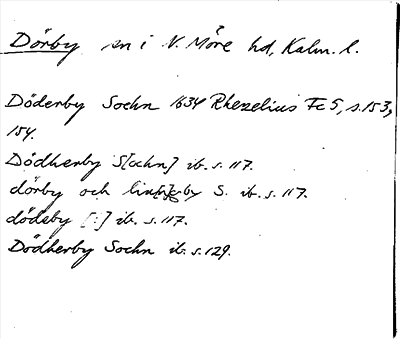 Dörby sn i N. Möre hd, Kalm. l.
Döderby Sochn 1634 Rhezelius Fc 5, s. 153,
154.
Dödherby S[ochn] ib. s. 117.
dörby och by S. ib. s. 117.
dödeby [:] ib. s. 117.
Dödherby Sochn ib. s. 129.